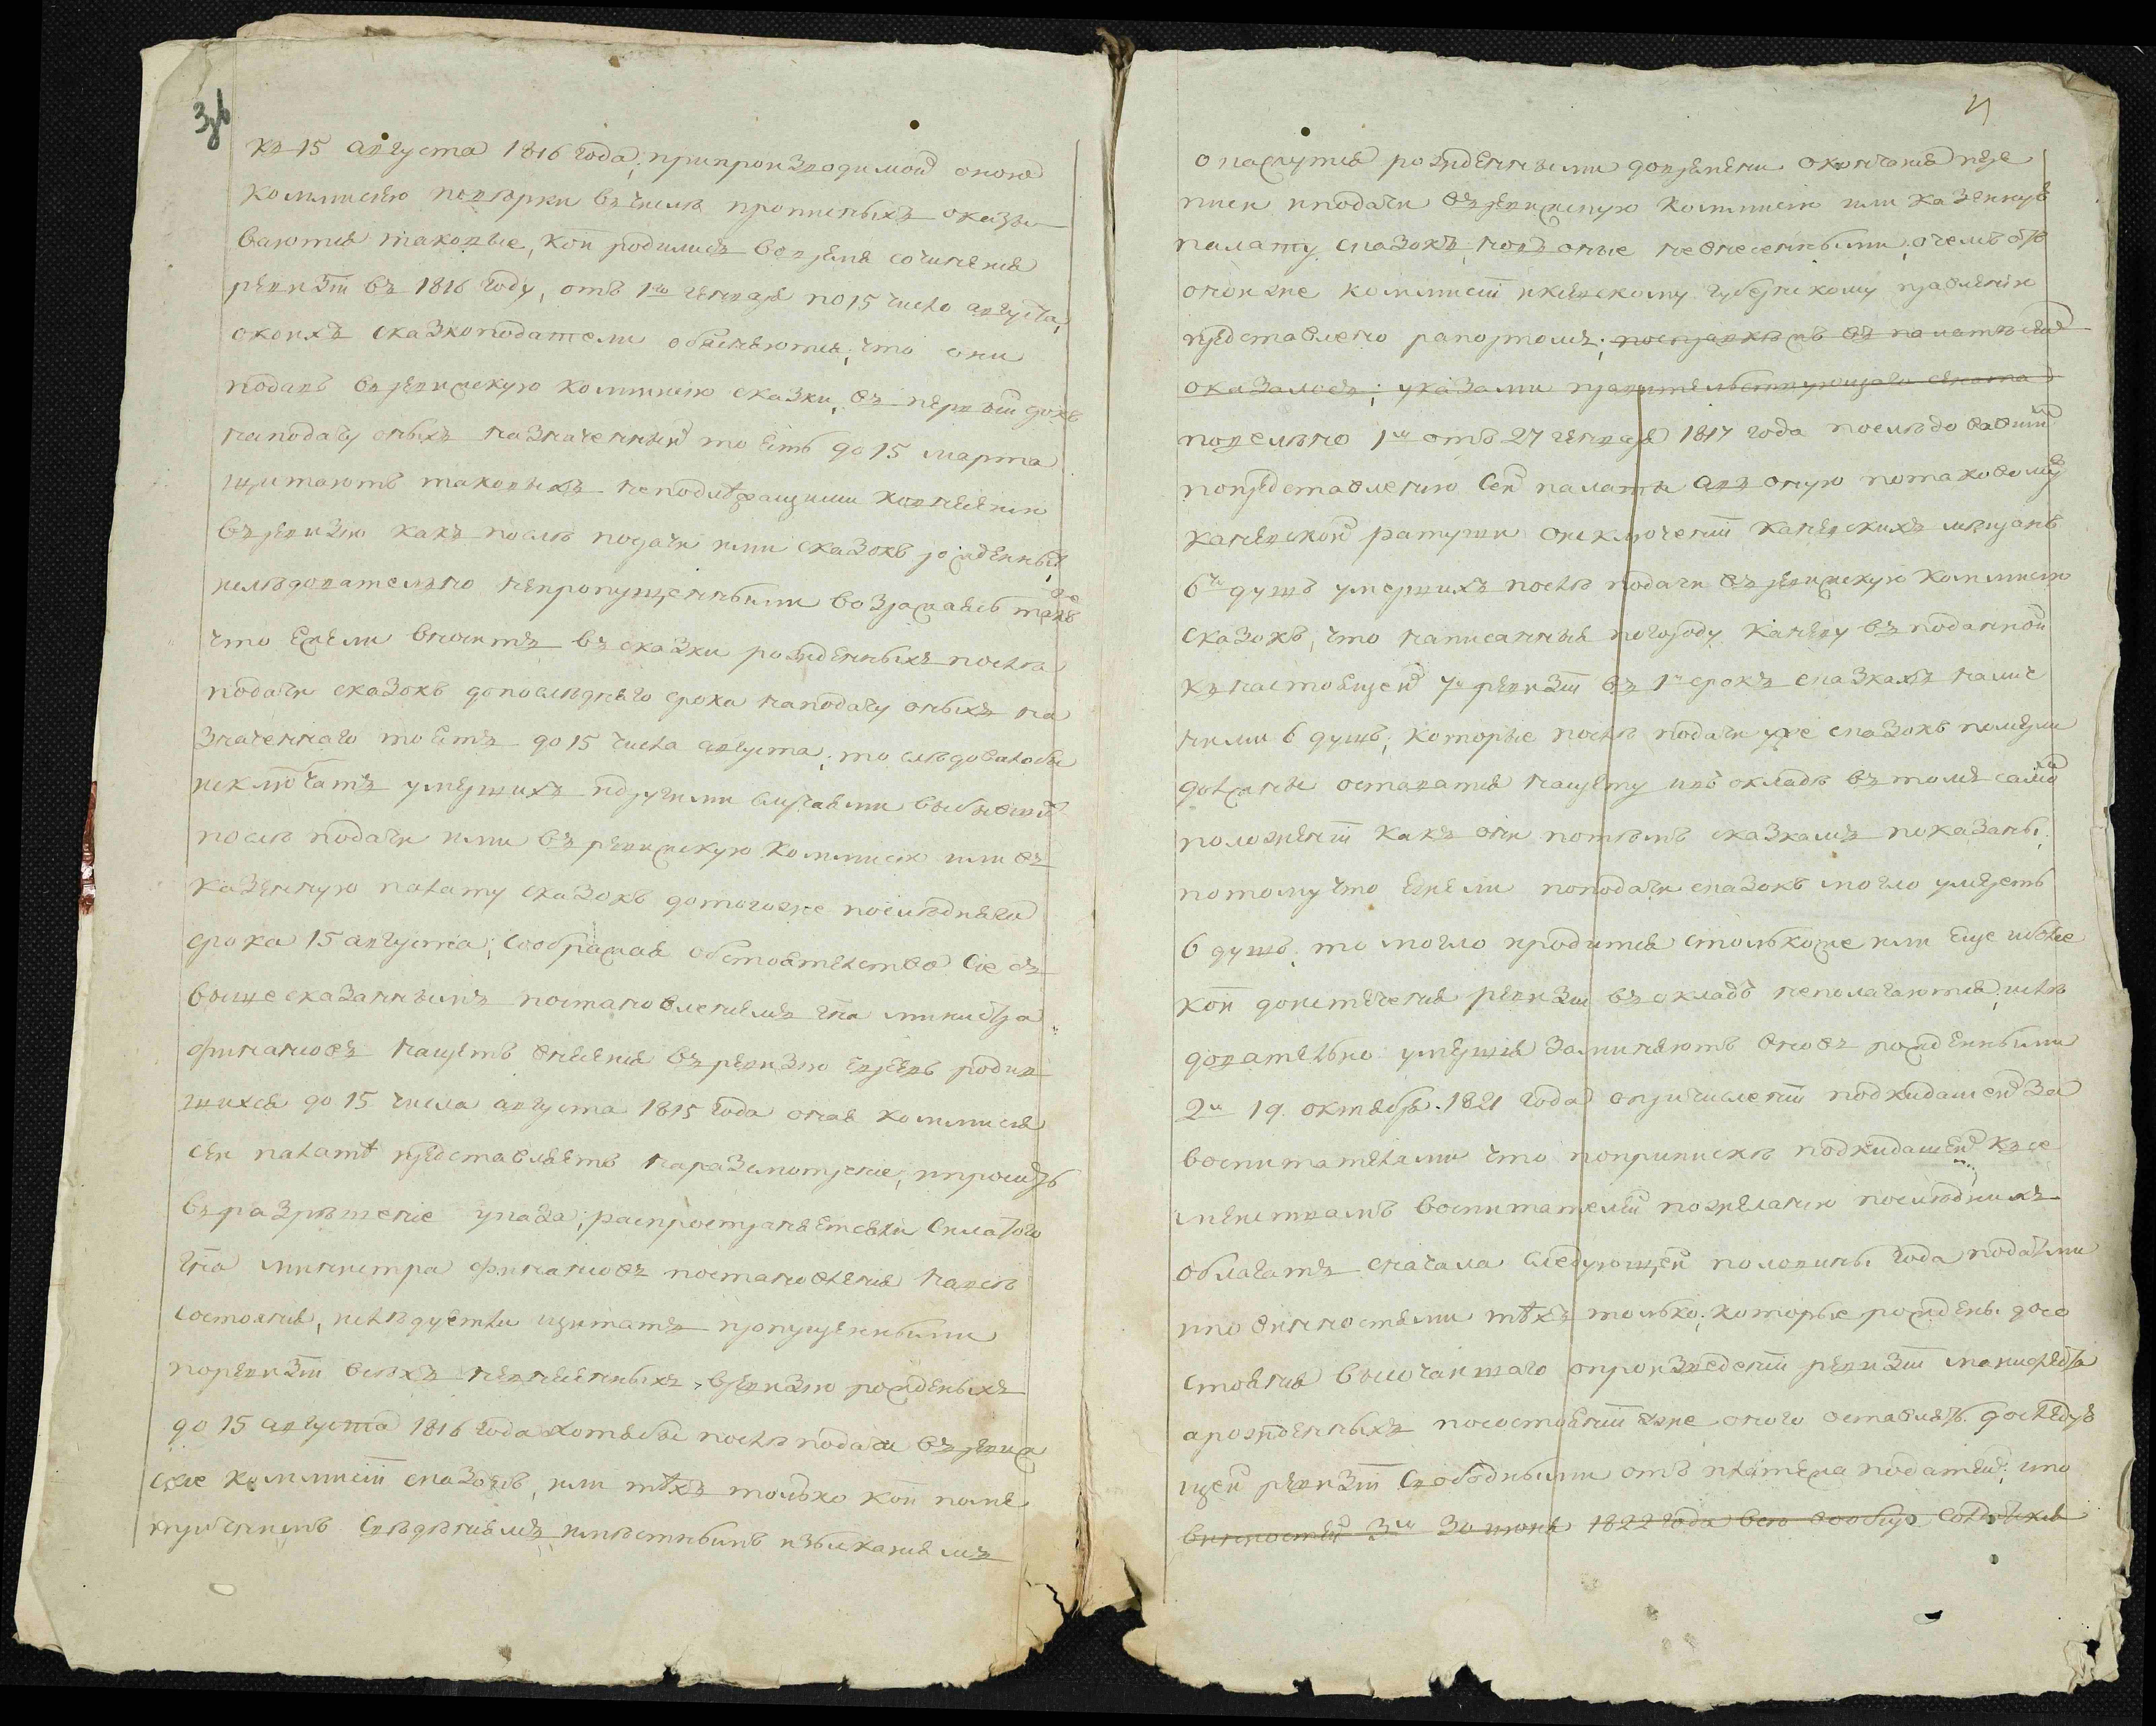 3 об
къ 15 августа 1816 года; при производимой оною
коммисиею поверки въ числѣ прописныхъ оказы
ваются таковые, кои родились во время сочинения
ревизіи въ 1816 году, отъ 1го генваря по 15 число августа,
о коихъ сказкоподатели объясняются; что они
подавъ въ ревижскую коммисию сказки, въ первый срокъ
на подачу оныхъ назначенный то есть до 15 марта
щитаютъ таковыхъ неподлежащими ко внесению
въ ревизию какъ послѣ подачи ими сказокъ рожденныхъ
и слѣдовательно непропущенными возражаясь тѣмъ
что ежели вносить въ сказки рожденныхъ посля
подачи сказокъ до послѣдняго срока на подачу оныхъ на
значеннаго то есть до 15 числа августа; то слѣдовало бы
исключать умершихъ и другими случаями выбывшихъ
послѣ подачи ими въ ревижскую коммисию или въ
казенную палату сказокъ до того же послѣдняго
срока 15 августа; соображая обстоятельство сие съ
вышесказаннымъ постановлениемъ гна министра
финансовъ нащетъ внесения въ ревизию евреевъ родив
шихся до 15 числа августа 1815 года оная коммисия
сей палатѣ представляетъ на разсмотрение, и проситъ
въ разрѣшение указа; распространяется ли сила того
гна министра финансовъ постановления на всѣ
состояния, и слѣдуетъ ли щитать пропущенными
по ревизіи всѣхъ невнесенныхъ въ ревизию рожденыхъ
до 15 августа 1816 года хотя бы послѣ подачи въ ревиж
ские коммисіи сказокъ, или тѣхъ только кои по
свѣдѣниямъ и мѣстнымъ изысканиямъ
4
окажутся рожденными до времени окончания пере
писи и подачи въ ревижскую коммисию или казенную
палату сказокъ, но въ оные невнесенными, о чемъ отъ
оной же коммисіи и киевскому губернскому правлению
представлено рапортомъ; по справкѣ жъ въ палатѣ сей
оказалось; указами правительствующаго сената
повелѣно 1е отъ 27 генваря 1817 года последовавшимъ
по представлению сей палаты а въ оную по таковому
каневской ратуши о исключеніи каневскихъ мѣщанъ
6ти душъ умершихъ послѣ подачи въ ревижскую коммисию
сказокъ, что написанныя по городу каневу въ поданной
къ настоящей 7й ревизіи въ 1й срокъ сказкахъ налич
ними 6 душъ; которые послѣ подачи уже сказокъ померли
должны оставатся нащету и въ окладѣ въ томъ самомъ
положеніи какъ они по тѣмъ сказкамъ показаны,
потому что ежели по подачи сказокъ могло умереть
6 душъ, то могло и родится столько же или еще и болѣе
кои до истечения ревизии въ окладъ неполагаются; и слѣ
довательно умершия заменяютъ вновь рожденными
2е 19 октября 1821 года о причислении подкидышей за
воспитателями что по приписке подкидышей къ се
мействамъ воспитателей по желанию послѣднихъ
облагать сначала следующей половины года податми
и повинностями тѣхъ только; которые рождены до со
стояния высочайшаго о произведеніи ревизіи манифеста
а рожденныхъ по состоянии уже онаго оставлять до следую
щей ревизіи свободными отъ платежа податей, и по
винностей 3е 30 июня 1822 года